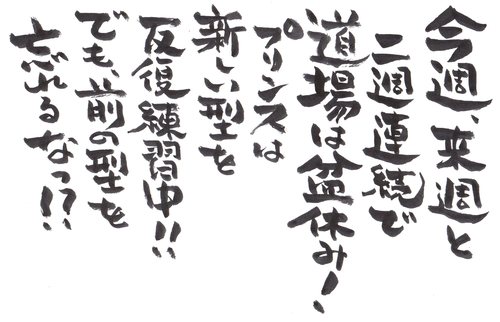 今週、来週と
二週連続で
道場は盆休み！
プリンスは
新しい型を
反復練習中！！
でも、前の型を
忘れるなっ！？